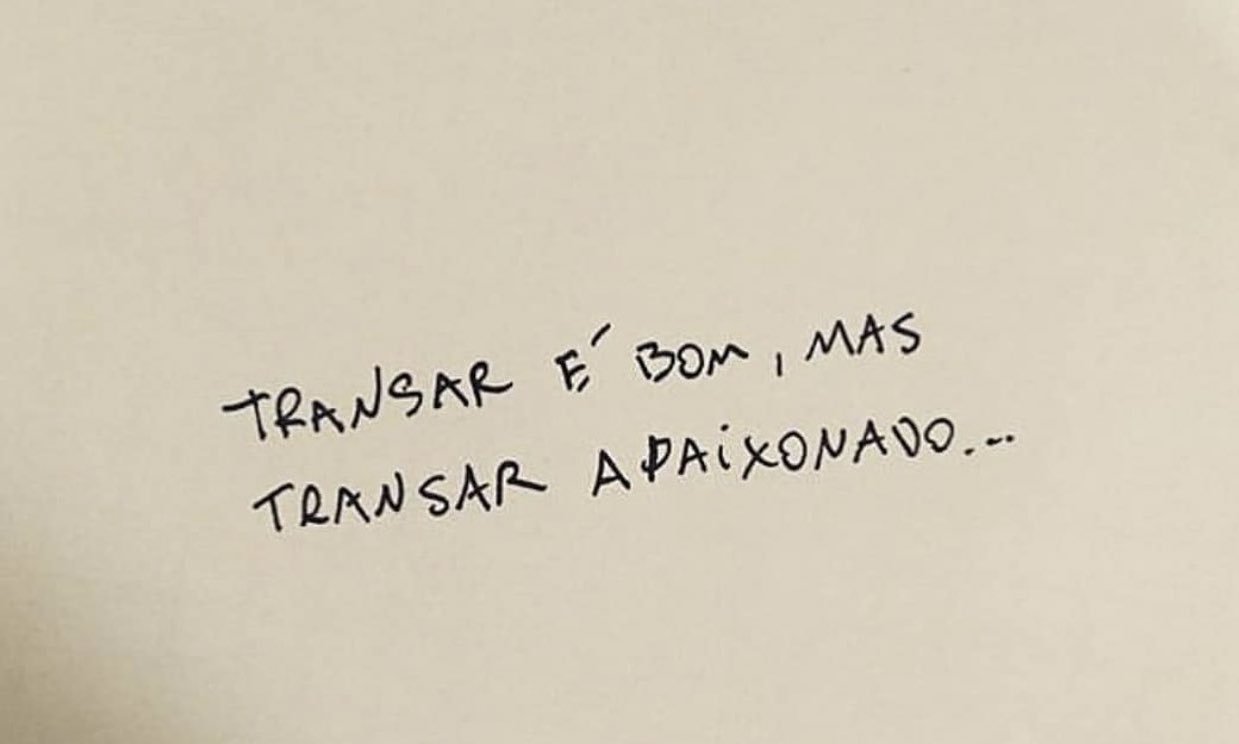 TRANSAR É BOM, MAS
TRANSAR APAIXONADO...